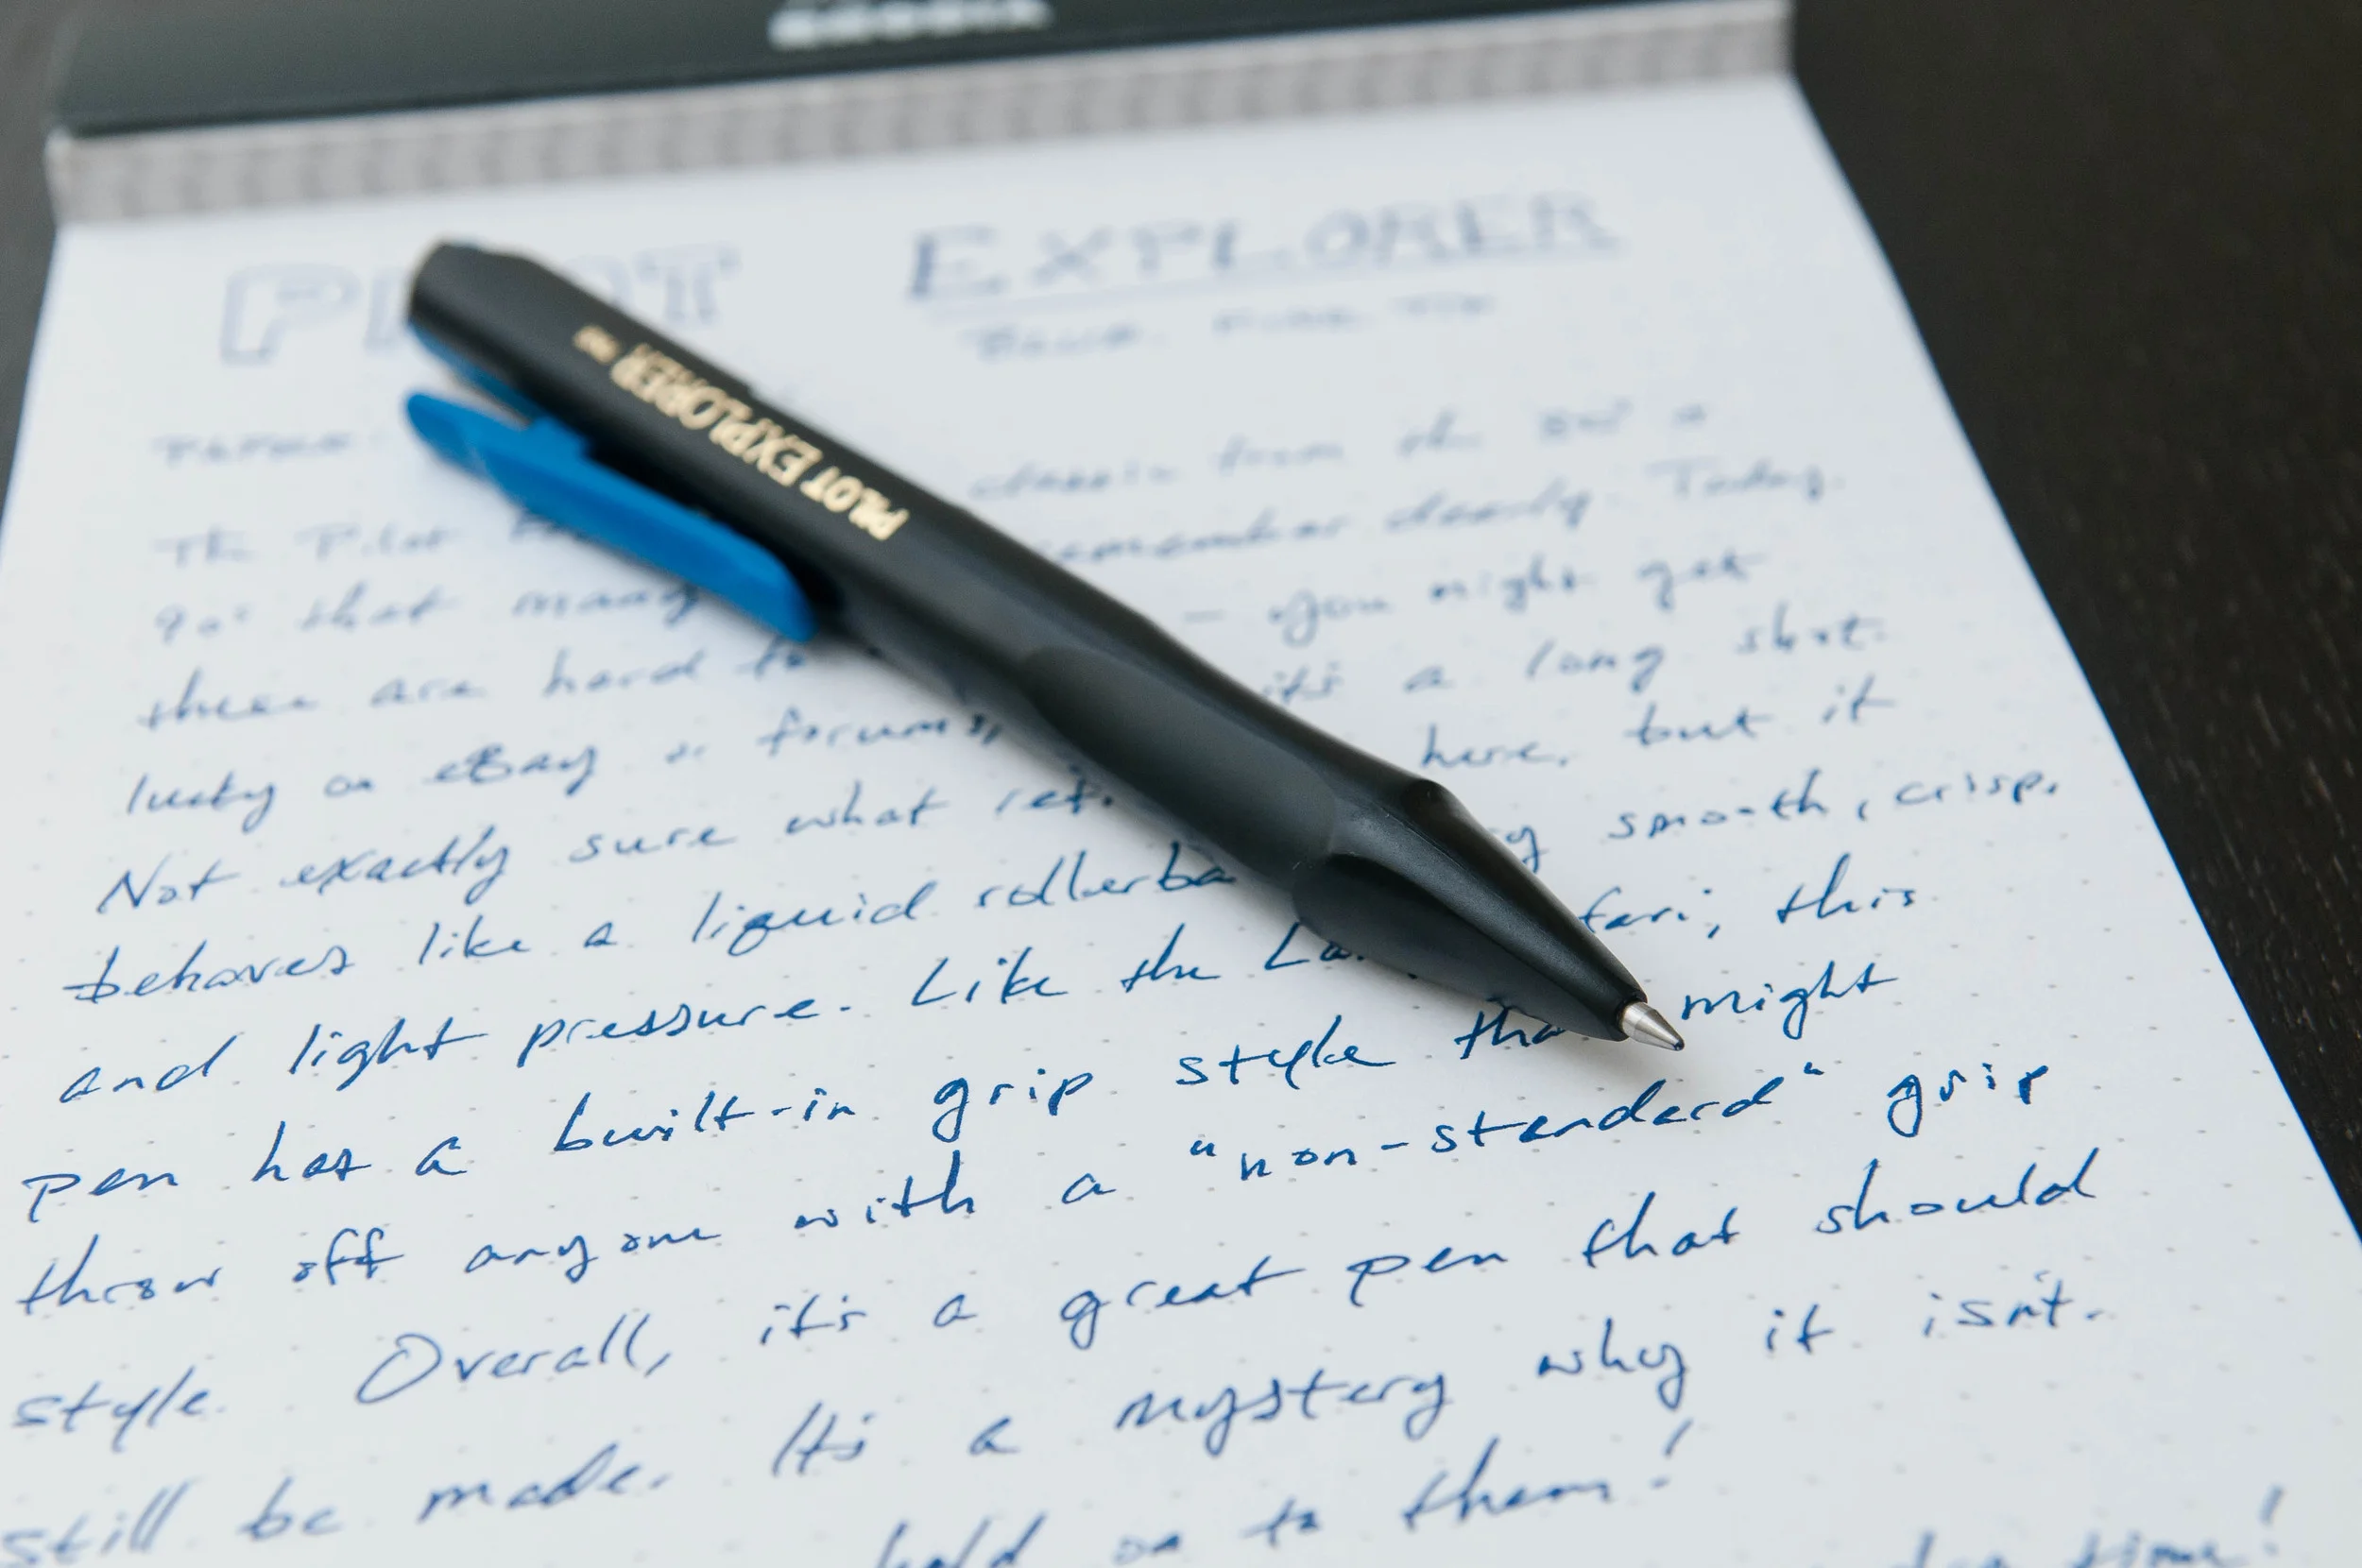 PILOT EXPLORER
BLUE. FINE TIP
classic from the 80's &
The Pilot remember clearly. Today
90s that many – you might get
these are hard to it's a long shot.
lucky on eBay or forums, here, but it
Not exactly sure what smooth, crisp,
behaves like a liquid rollerba
and light pressure. Like the this
pen has a built-in grip style that might
throw off anyone with a "non-standard" grip
style. Overall, it's a great pen that should
still be made. It's a mystery why it isn't.
hold on to them!
time!
PILOT EXPLORER